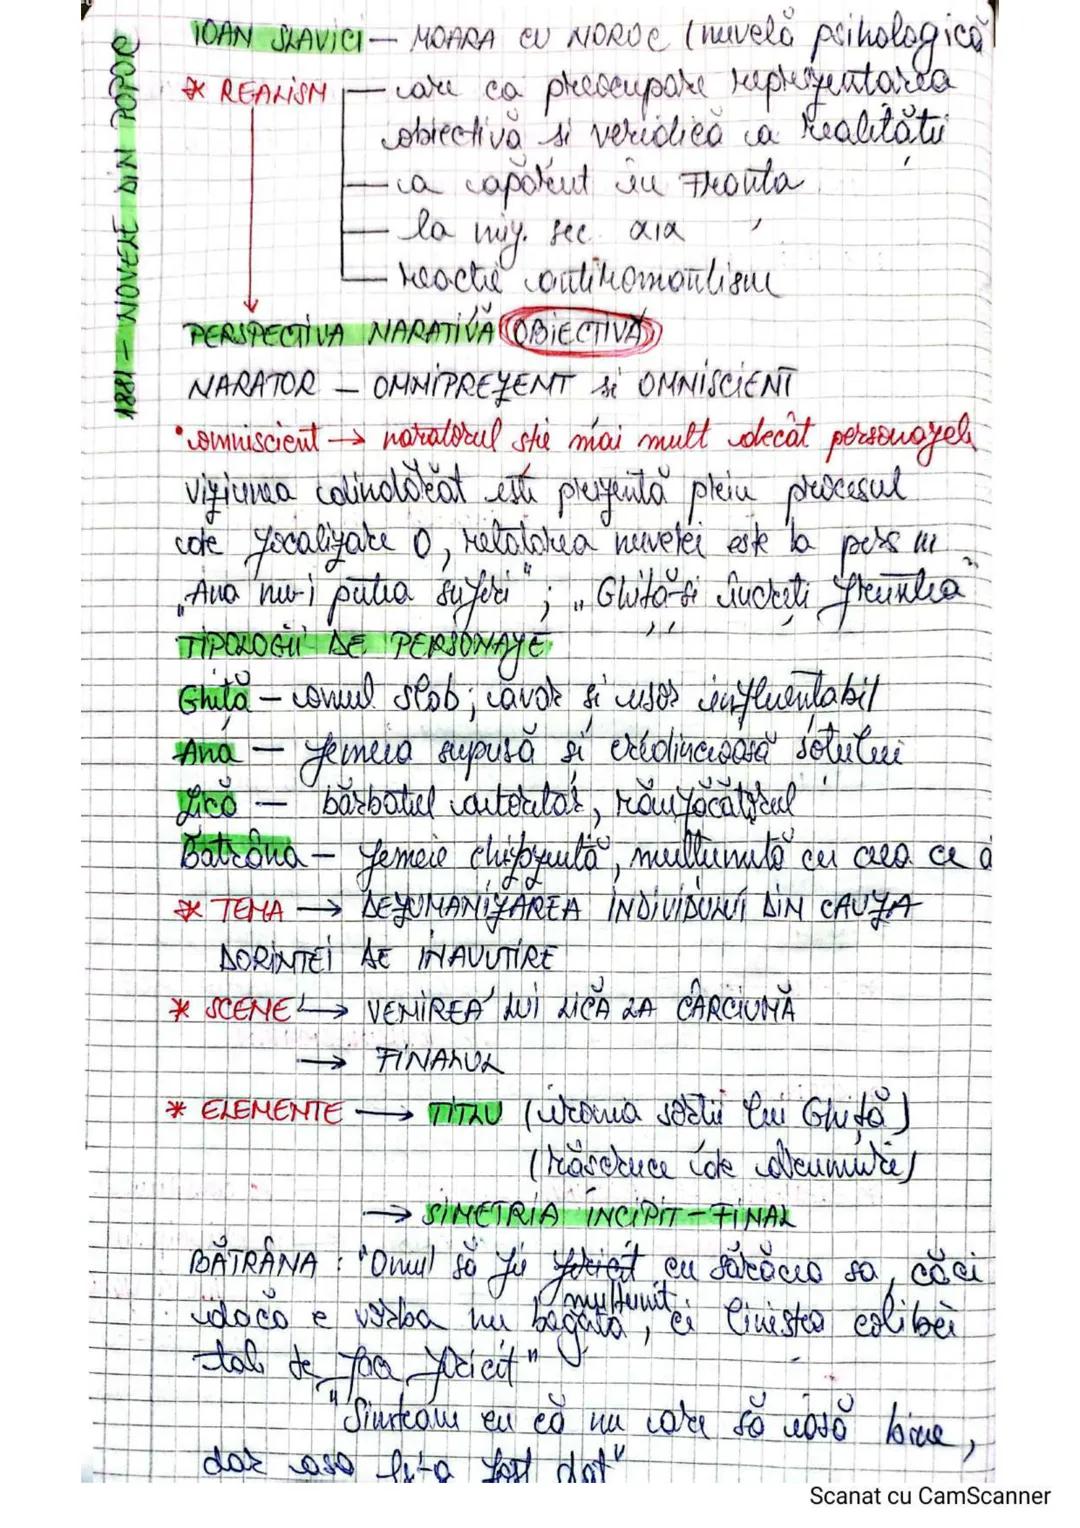 1881 - NOVELE DIN POPOR
IOAN SLAVICI - MOARA CU NOROC (nuvelă psihologică)
* REALISM - are ca preocupare reprezentarea
obiectivă si veridică a realității
- a apărut în Franța
- la mij. sec. XIX
- reacție antiromantism
PERSPECTIVA NARATIVĂ OBIECTIVĂ
NARATOR - OMNIPREZENT și OMNISCIENT
• omniscient → naratorul știe mai mult decât personajele
viziunea dindărăt este prezentă prin procesul
de focalizare 0, relatarea nuvelei este la pers III
„Ana nu-i putea suferi"; „Ghiță-și încreți fruntea"
TIPOLOGII DE PERSONAJE
Ghiță - omul slab; avar și ușor influentabil
Ana - femeia supusă și credincioasă soțului
Lică - bărbatul autoritar, răufăcătorul
Bătrâna - femeie chibzuită, mulțumită cu ceea ce a
* TEMA → DEZUMANIZAREA INDIVIDULUI DIN CAUZA
DORINȚEI DE INAVUTIRE
* SCENE → VENIREA LUI LICĂ LA CÂRCIUMĂ
→ FINALUL
* ELEMENTE → TITLU (ironia sorții lui Ghiță)
(răscruce de drumuri)
→ SIMETRIA INCIPIT - FINAL
BĂTRÂNA : "Omul să fie fericit cu sărăcia sa, căci
mulțumit
dacă e vorba nu bogăția, ci liniștea colibei
tale te face fericit"
"Simțeam eu că nu are să iasă bine,
dar asa le-a fost dat"
Scanat cu CamScanner